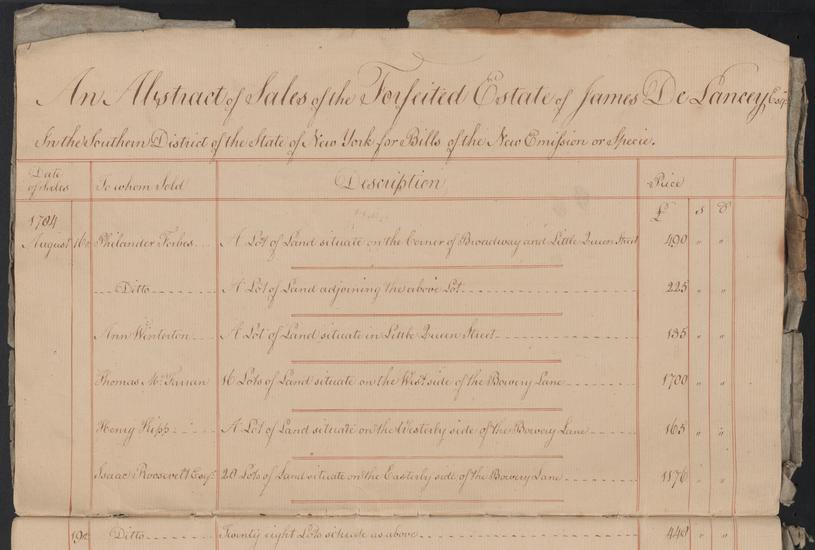 An Abstract of Sales of the Forfeited Estate of James De Lancey Esqr.
In the Southern District of the State of New York for Bills of the New Emission or Specie.
Date of Sales To whom Sold Description Price
£ s d
1784
August 16 Philander Forbes A Lot of Land situate on the Corner of Broadway and Little Queen Street 490 " "
Ditto A Lot of Land adjoining the above Lot 225 " "
Ann Winterton A Lot of Land situate in Little Queen Street 135 " "
Thomas Mc. Farran 16 Lots of Land situate on the West side of the Bowery Lane 1700 " "
Henry Kipp A Lot of Land situate on the Westerly side of the Bowery Lane 165 " "
Isaac Roosevelt Esqr. 20 Lots of Land situate on the Easterly side of the Bowery Lane 1176 " "
19 Ditto Twenty eight Lots situate as above 440 " "